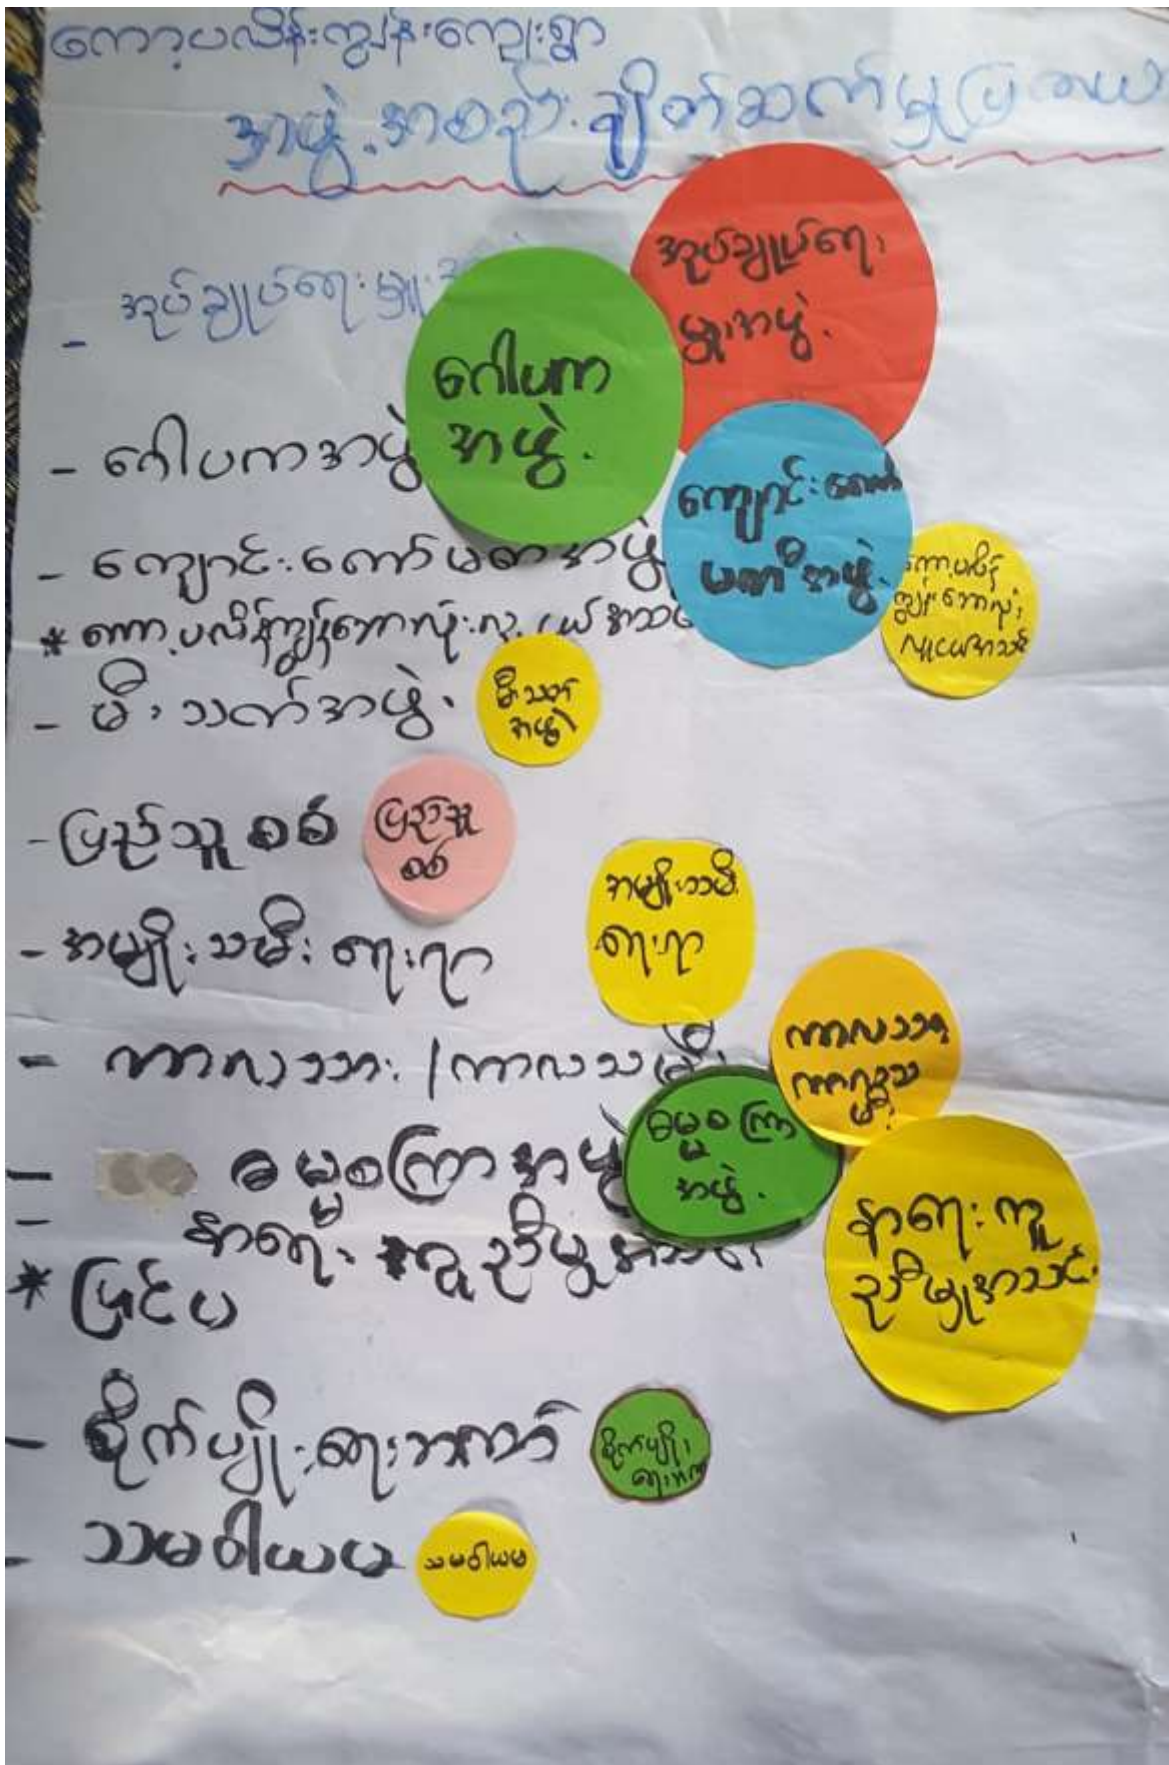 ကော့ပလိန်းကျွန်းကျေးရွာ
အဖွဲ့အစည်းချိတ်ဆက်မှုပြ
အုပ်ချုပ်ရေးမှူး
အုပ်ချုပ်ရေး
မှူးအဖွဲ့
- ဂေါပကအဖွဲ့
ဂေါပက
အဖွဲ့
- ကျောင်းကော်မတီအဖွဲ့
ကျောင်းကော်
မတီအဖွဲ့
* ကော့ပလိန်ကျွန်းဘောလုံးလူငယ်
ကော့ပလိန်
ကျွန်းဘောလုံး
လူငယ်အသင်း
- မီးသတ်အဖွဲ့
မီးသတ်
အဖွဲ့
- ပြည်သူ့စစ်
ပြည်သူ့
စစ်
- အမျိုးသမီးရေးရာ
အမျိုးသမီး
ရေးရာ
- ကာလသား / ကာလသမီး
ကာလသား
ကာလသ
မီး
- ဓမ္မစကြာအဖွဲ့
ဓမ္မစကြာ
အဖွဲ့
- နာရေးကူညီမှုအသင်း
နာရေးကူ
ညီမှုအသင်း
* ပြင်ပ
- စိုက်ပျိုးရေးဘဏ်
စိုက်ပျိုး
ရေးဘဏ်
- သမဝါယမ
သမဝါယမ